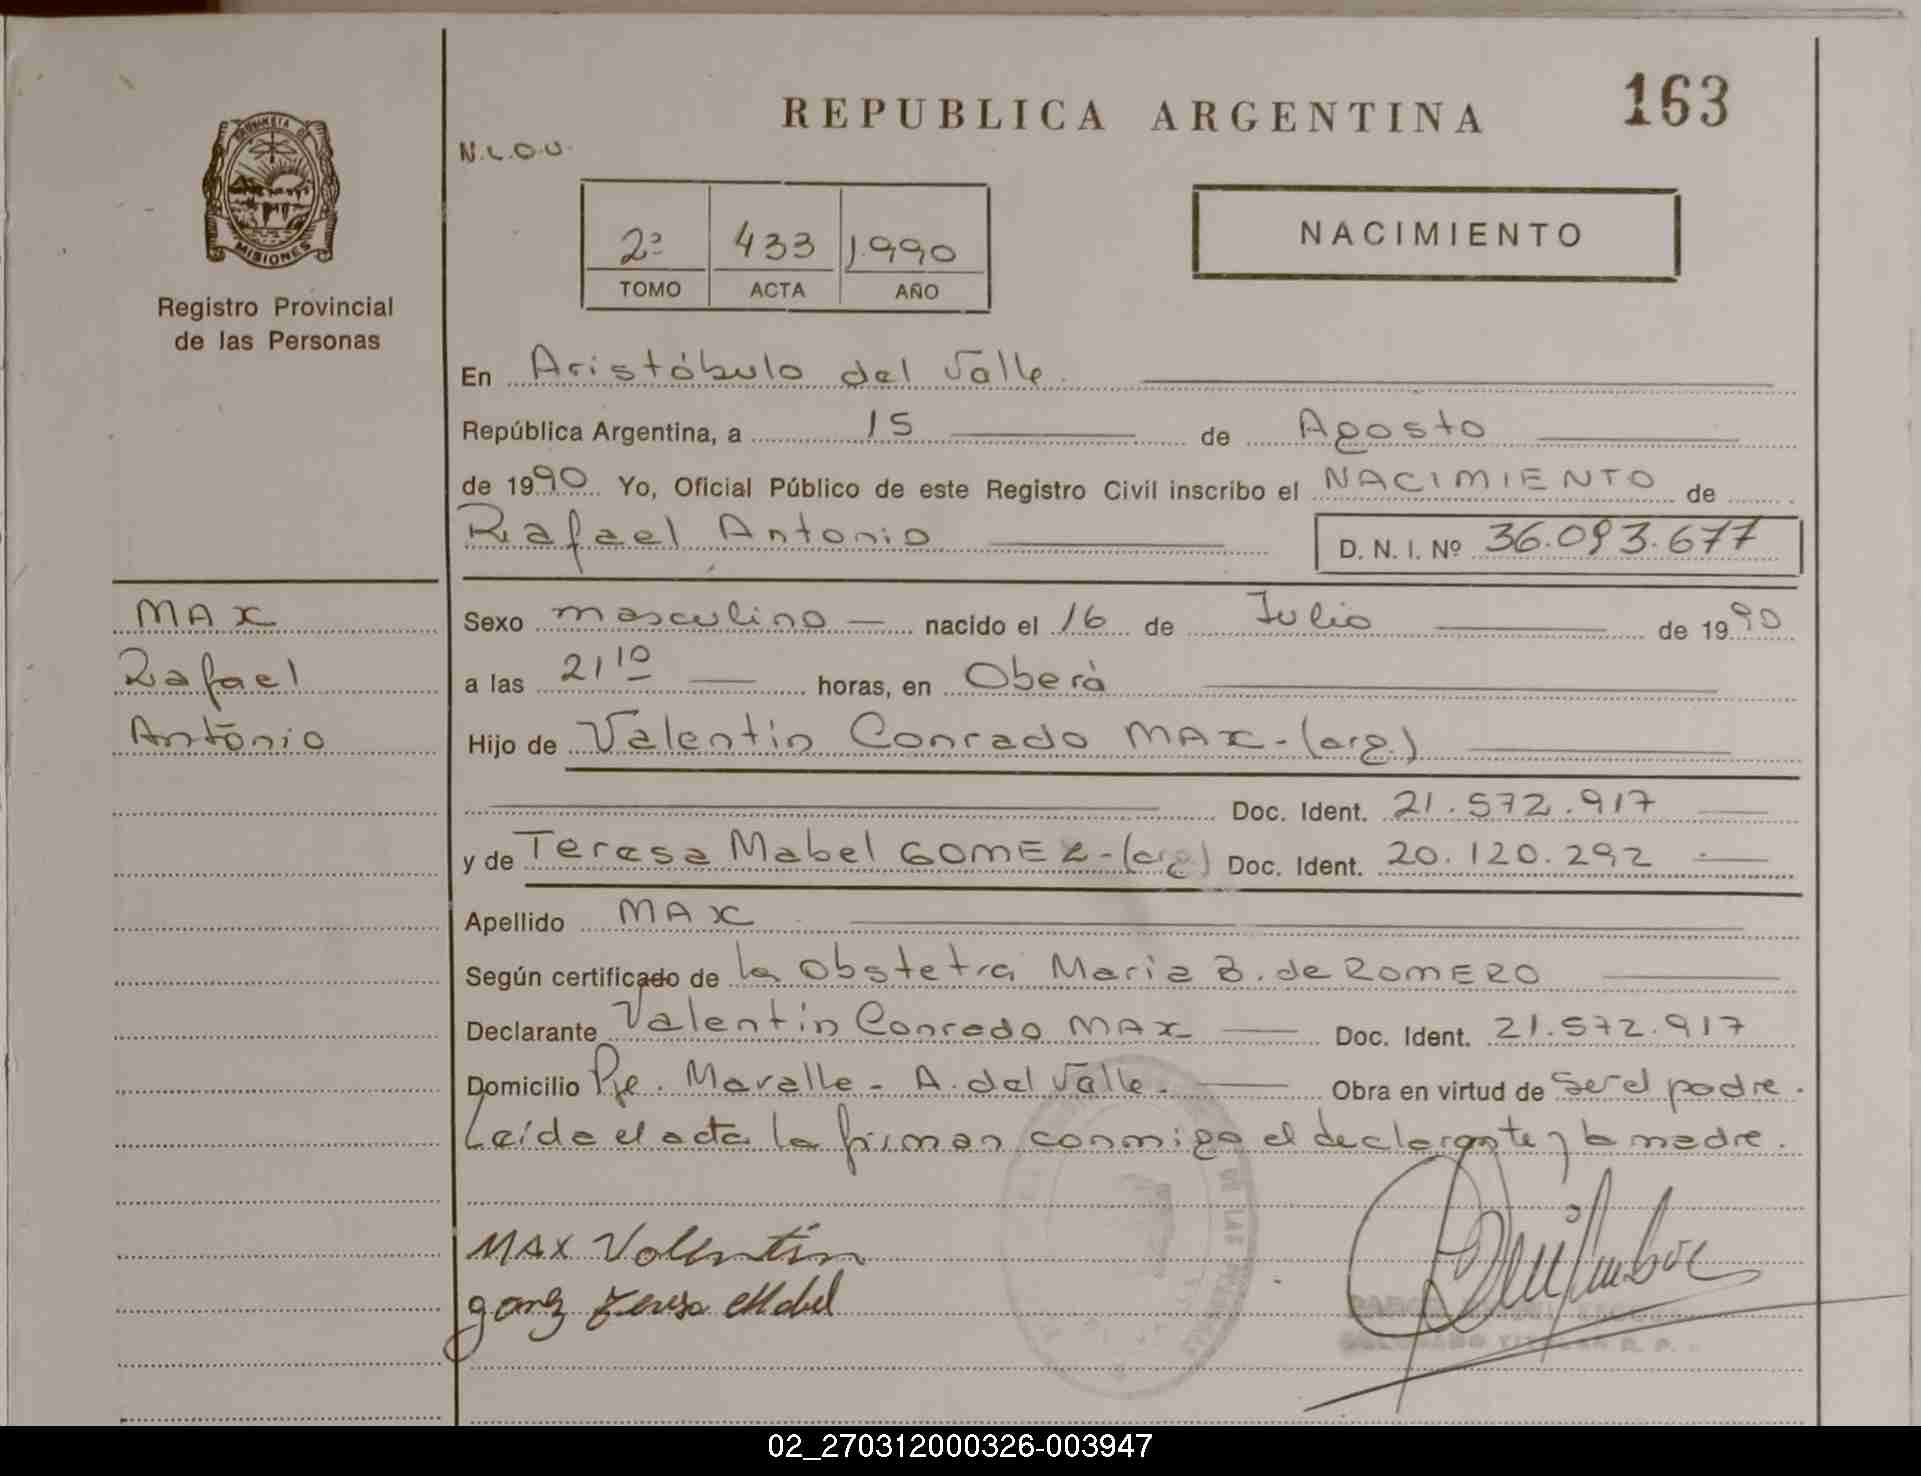 163
REPUBLICA ARGENTINA
N.L.O.U.
PROVINCIA DE
MISIONES
Registro Provincial
de las Personas
2ª 433 1.990
TOMO ACTA AÑO
NACIMIENTO
En Aristóbulo del Valle.
República Argentina, a 15 de Agosto
de 1990 Yo, Oficial Público de este Registro Civil inscribo el NACIMIENTO de
Rafael Antonio D. N. I. Nº 36.093.677
MAX
Rafael
Antonio
Sexo masculino nacido el 16 de Julio de 1990
a las 21 10 horas, en Oberá
Hijo de Valentín Conrado MAX-(arg.)
Doc. Ident. 21.572.917
y de Teresa Mabel GOMEZ-(arg) Doc. Ident. 20.120.292
Apellido MAX
Según certificado de la Obstetra María B. de ROMERO
Declarante Valentín Conrado MAX Doc. Ident. 21.572.917
Domicilio Pje. Mavalle - A. del Valle. Obra en virtud de Ser el padre.
Leída el acta la firman conmigo el declarante y la madre.
MAX Valentin
gomez teresa Mabel
02_270312000326-003947